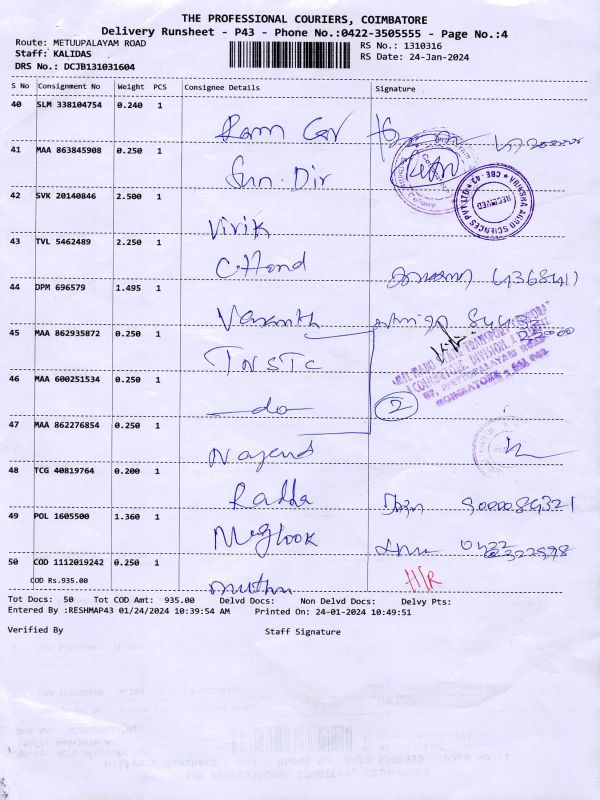 THE PROFESSIONAL COURIERS, COIMBATORE
Delivery Runsheet - P43 - Phone No.:0422-3505555 - Page No.:4
Route: METUUPALAYAM ROAD
Staff: KALIDAS
DRS No.: DCJB131031604
RS No.: 1310316
RS Date: 24-Jan-2024
S No Consignment No Weight PCS Consignee Details Signature
40 SLM 338104754 0.240 1
Ram
41 MAA 863845908 0.250 1
Sun. Dir
VRIKSHA AGRO SCIENCES PVT LTD ★ CBE - 43 ★
RECEIVED
42 SVK 20140846 2.500 1
Vivik
43 TVL 5462489 2.250 1
C. Hond
44 DPM 696579 1.495 1
Vasanth
45 MAA 862935872 0.250 1
TNSTC
46 MAA 600251534 0.250 1
do 2
47 MAA 862276854 0.250 1
48 TCG 40819764 0.200 1
Radha
49 POL 1605500 1.360 1
50 COD 1112019242 0.250 1
COD Rs.935.00
muthu
Tot Docs: 50 Tot COD Amt: 935.00 Delvd Docs: Non Delvd Docs: Delvy Pts:
Entered By :RESHMAP43 01/24/2024 10:39:54 AM Printed On: 24-01-2024 10:49:51
Verified By Staff Signature